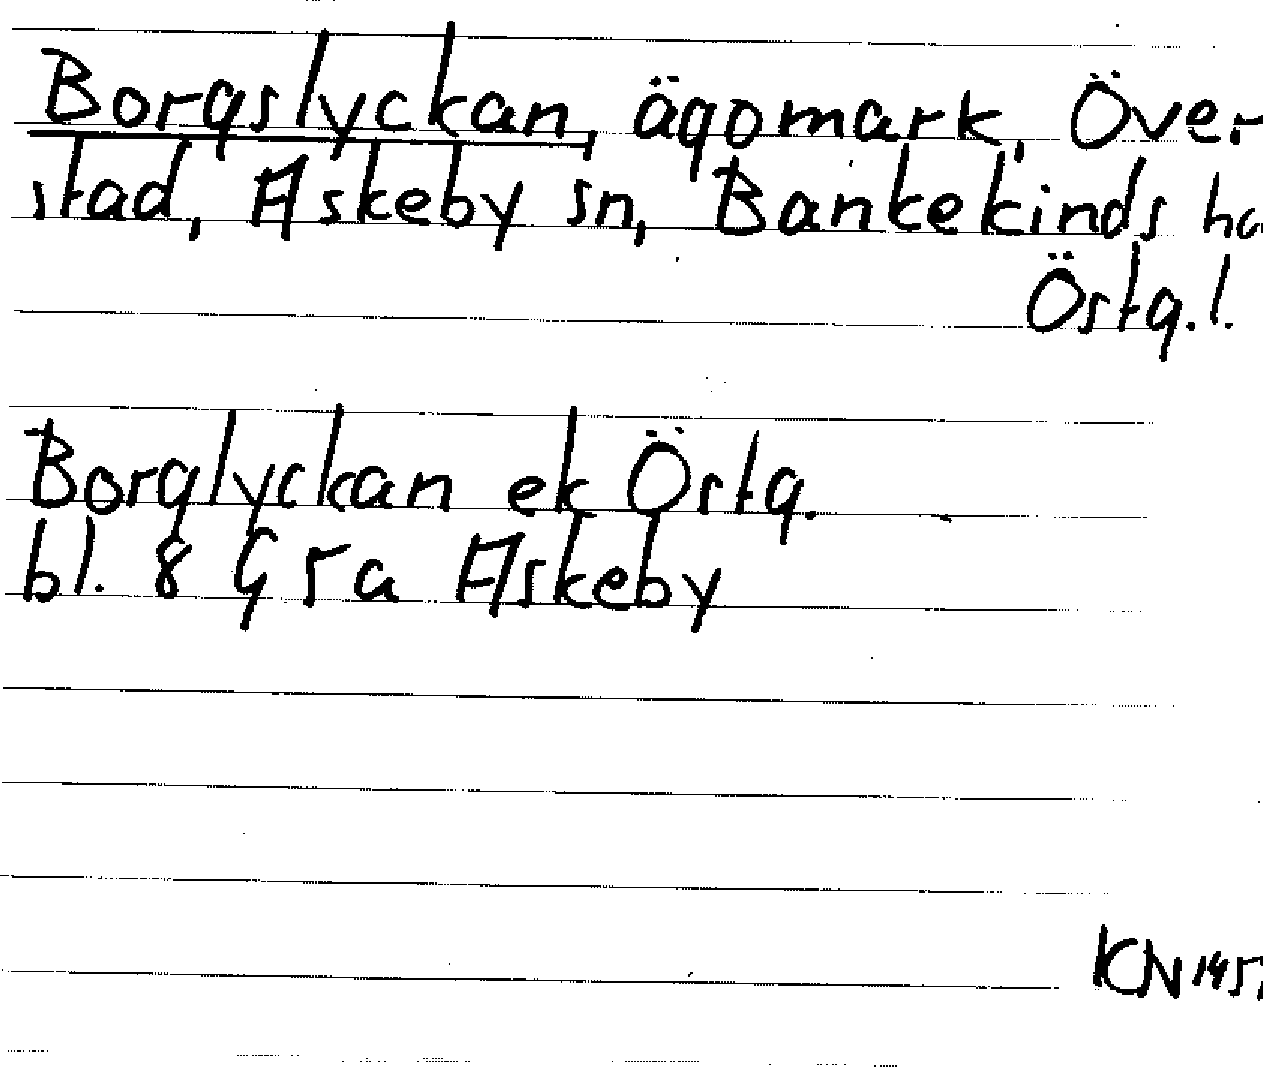 Borgslyckan, ägomark, Över
stad, Askeby sn, Bankekinds ha
Östg. l.
Borglyckan ek Östg.
bl. 8 G 5a Askeby
KN 1957